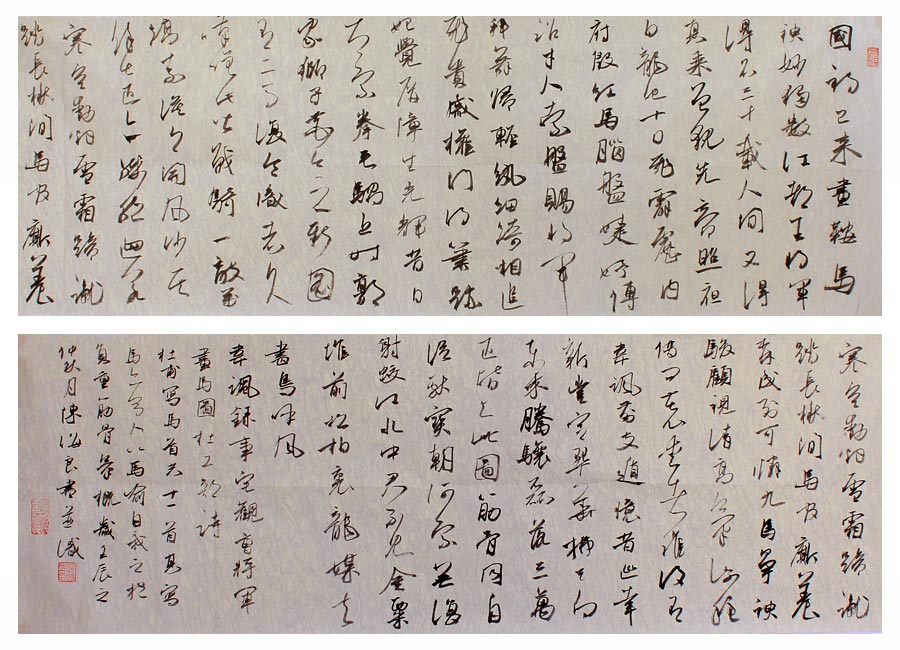 國初已來畫鞍馬
神妙獨數江都王將軍
得名三十載人間又得
真乘黃曾貌先帝照夜
白龍池十日飛霹靂內
府殷紅馬腦盤婕妤傳
詔才人索盤賜將軍
拜舞歸輕紈細綺相追
飛貴戚權門得筆跡
始覺屏障生光輝昔日
太宗拳毛騧近時郭
家獅子花今之新圖
有二馬復令識者久
嘆嗟此皆戰騎一敵萬
縞素漠漠開風沙其
餘七匹亦殊絕迥若
寒空動煙雪霜蹄蹴
踏長楸間馬官廝養
寒空動煙雪霜蹄蹴
踏長楸間馬官廝養
森成列可憐九馬爭神
駿顧視清高氣深穩
借問苦心愛者誰後有
韋諷前支遁憶昔巡幸
新豐宮翠華拂天向
東來騰驤磊落三萬
匹皆與此圖筋骨同自
從獻寶朝河宗無復
射蛟江水中君不見金粟
堆前松柏裏龍媒去
盡鳥呼風
韋諷錄事宅觀曹將軍
畫馬圖杜工部詩
杜甫寫馬首共十一首為寫
馬亦寫人以馬喻自我之
負重筋骨氣概歲壬辰之
仲秋月陳海良書並識